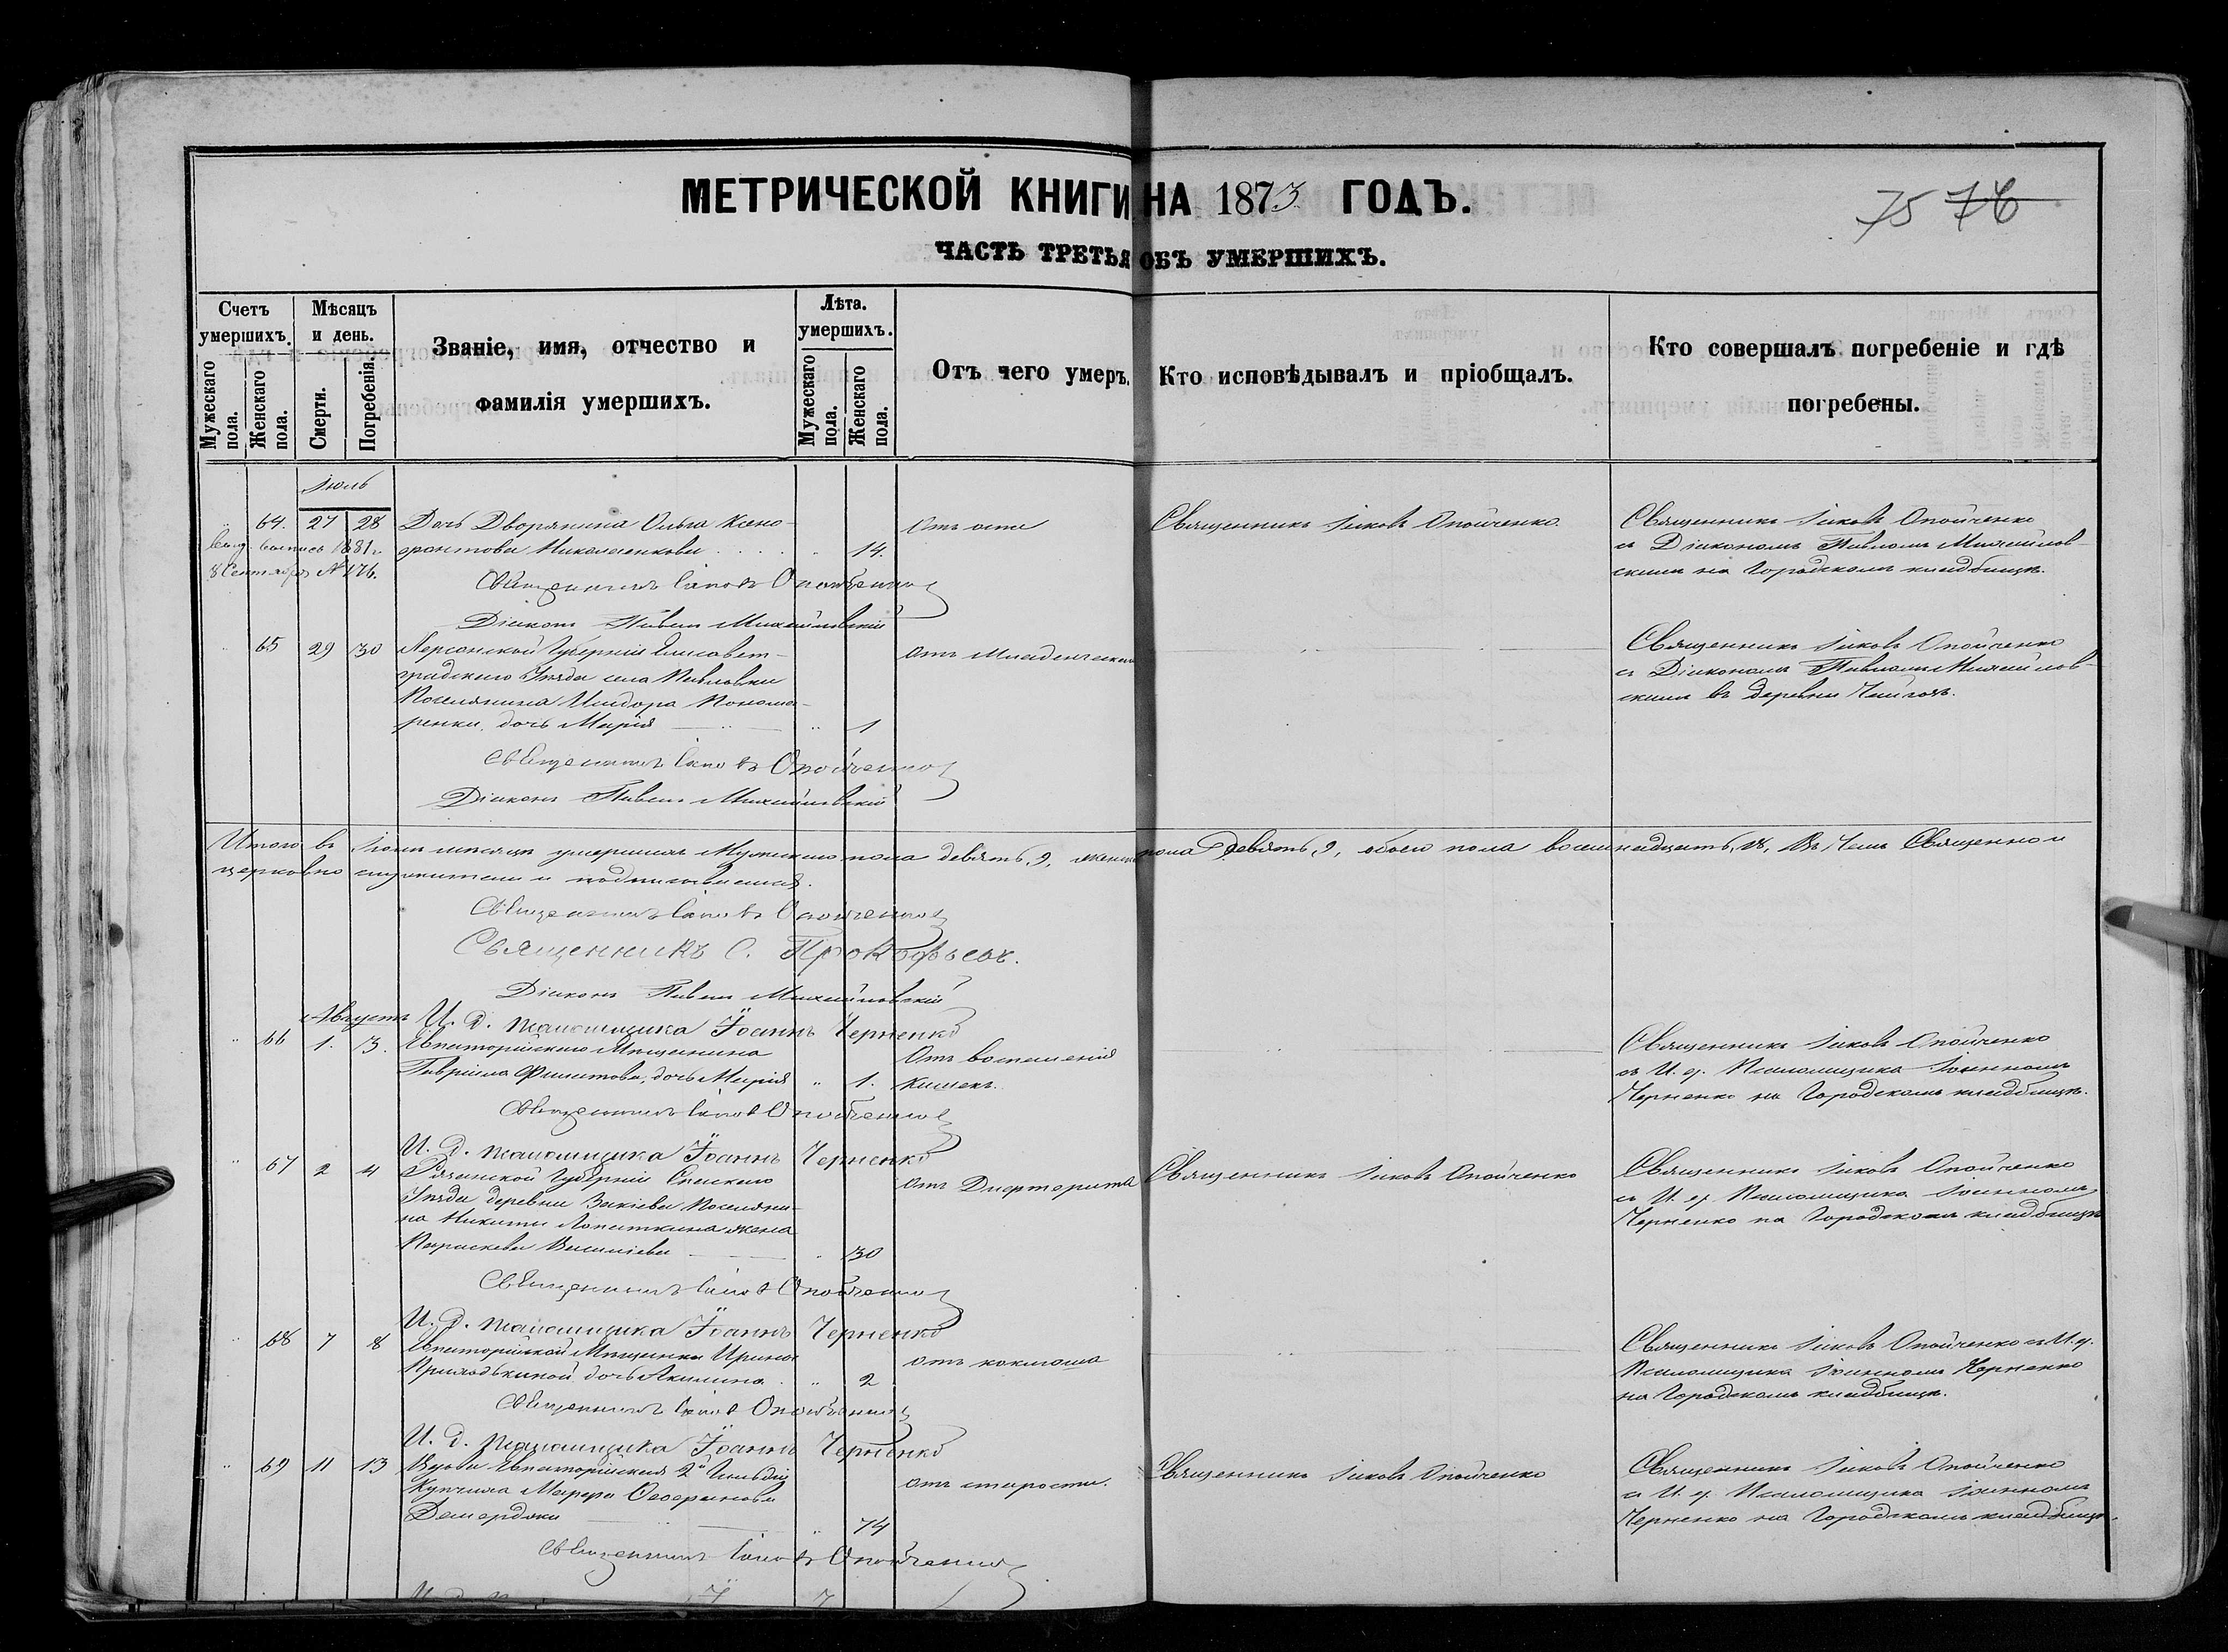 МЕТРИЧЕСКОЙ КНИГИ НА 1873 ГОДЪ.
75 76
ЧАСТЬ ТРЕТЬЯ ОБЪ УМЕРШИХЪ.
Счетъ умершихъ.
Мужескаго пола.
Женскаго пола.
Мѣсяцъ и день.
Смерти.
Погребенія.
Званіе, имя, отчество и
фамилія умершихъ.
Лѣта.
умершихъ.
Мужескаго пола.
Женскаго пола.
Отъ чего умеръ.
Кто исповѣдывалъ и пріобщалъ.
Кто совершалъ погребеніе и гдѣ
погребены.
Іюль
64. 27 28 Дочь Дворянина Ольга Ксено-
фонтова Николаенкова 14.
Отъ оспы
Священникъ Іаковъ Опойченко
Священникъ Іаковъ Опойченко
съ Діакономъ Павломъ Михайлов-
скимъ на Городскомъ кладбищѣ.
1881 г.
8 Сентября № 176.
Священникъ Іаковъ Опойченко
Діаконъ Павелъ Михайловскій
65 29 30 Херсонской Губерніи Елисавет-
градскаго Уѣзда села Павловки
Поселянина Исидора Понома-
ренки, дочь Марія 1
отъ младенческой
Священникъ Іаковъ Опойченко
съ Діакономъ Павломъ Михайлов-
скимъ въ деревни
Священникъ Іаковъ Опойченко
Діаконъ Павелъ Михайловскій
Итого въ Іюлѣ мѣсяцѣ умершихъ Мужескаго пола девять, 9, женскаго пола девять, 9, обоего пола восемнадцать, 18, Въ чемъ Священно и
церковно служители и подписываемся.
Священникъ Іаковъ Опойченко
Священникъ С. Прокофьевъ.
Діаконъ Павелъ Михайловскій
И. д. псаломщика Іоаннъ Черненко
Августъ
66 1. 3. Евпаторійскаго Мѣщанина
Гавріила Филатова, дочь Марія 1.
Отъ воспаленія
кишекъ.
Священникъ Іаковъ Опойченко
съ И. д. Псаломщика Іоанномъ
Черненко на Городскомъ кладбищѣ.
Священникъ Іаковъ Опойченко
И. д. псаломщика Іоаннъ Черненко
67 2 4 Рязанской Губерніи Спаскаго
Уѣзда деревни Поселяни-
на Никиты Лопаткина жена
Параскева Василіева 30
отъ Дифтерита
Священникъ Іаковъ Опойченко
Священникъ Іаковъ Опойченко
съ И. д. Псаломщика Іоанномъ
Черненко на Городскомъ кладбищѣ
Священникъ Іаковъ Опойченко
И. д. псаломщика Іоаннъ Черненко
68 7 8 Евпаторійской Мѣщанки Ирины
Приходькиной дочь Акилина 2
отъ коклюша
Священникъ Іаковъ Опойченко съ И. д.
Псаломщика Іоанномъ Черненко
на Городскомъ кладбищѣ.
Священникъ Іаковъ Опойченко
И. д. псаломщика Іоаннъ Черненко
69 11 13 Вдова Евпаторійская 2й Гильдіи
Купчиха Марфа
74
отъ старости.
Священникъ Іаковъ Опойченко
Священникъ Іаковъ Опойченко
съ И. д. Псаломщика Іоанномъ
Черненко на Городскомъ кладбищѣ.
Священникъ Іаковъ Опойченко